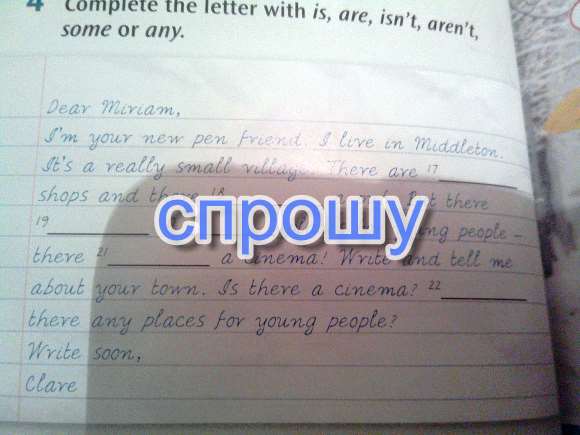 4 Complete the letter with is, are, isn't, aren't,
some or any.
Dear Miriam,
I'm your new pen friend. I live in Middleton.
It's a really small village. There are 17 ________
shops and there 18
there
19 ________ people –
there 21 ________ a cinema! Write and tell me
about your town. Is there a cinema? 22 ________
there any places for young people?
Write soon,
Clare
спрошу